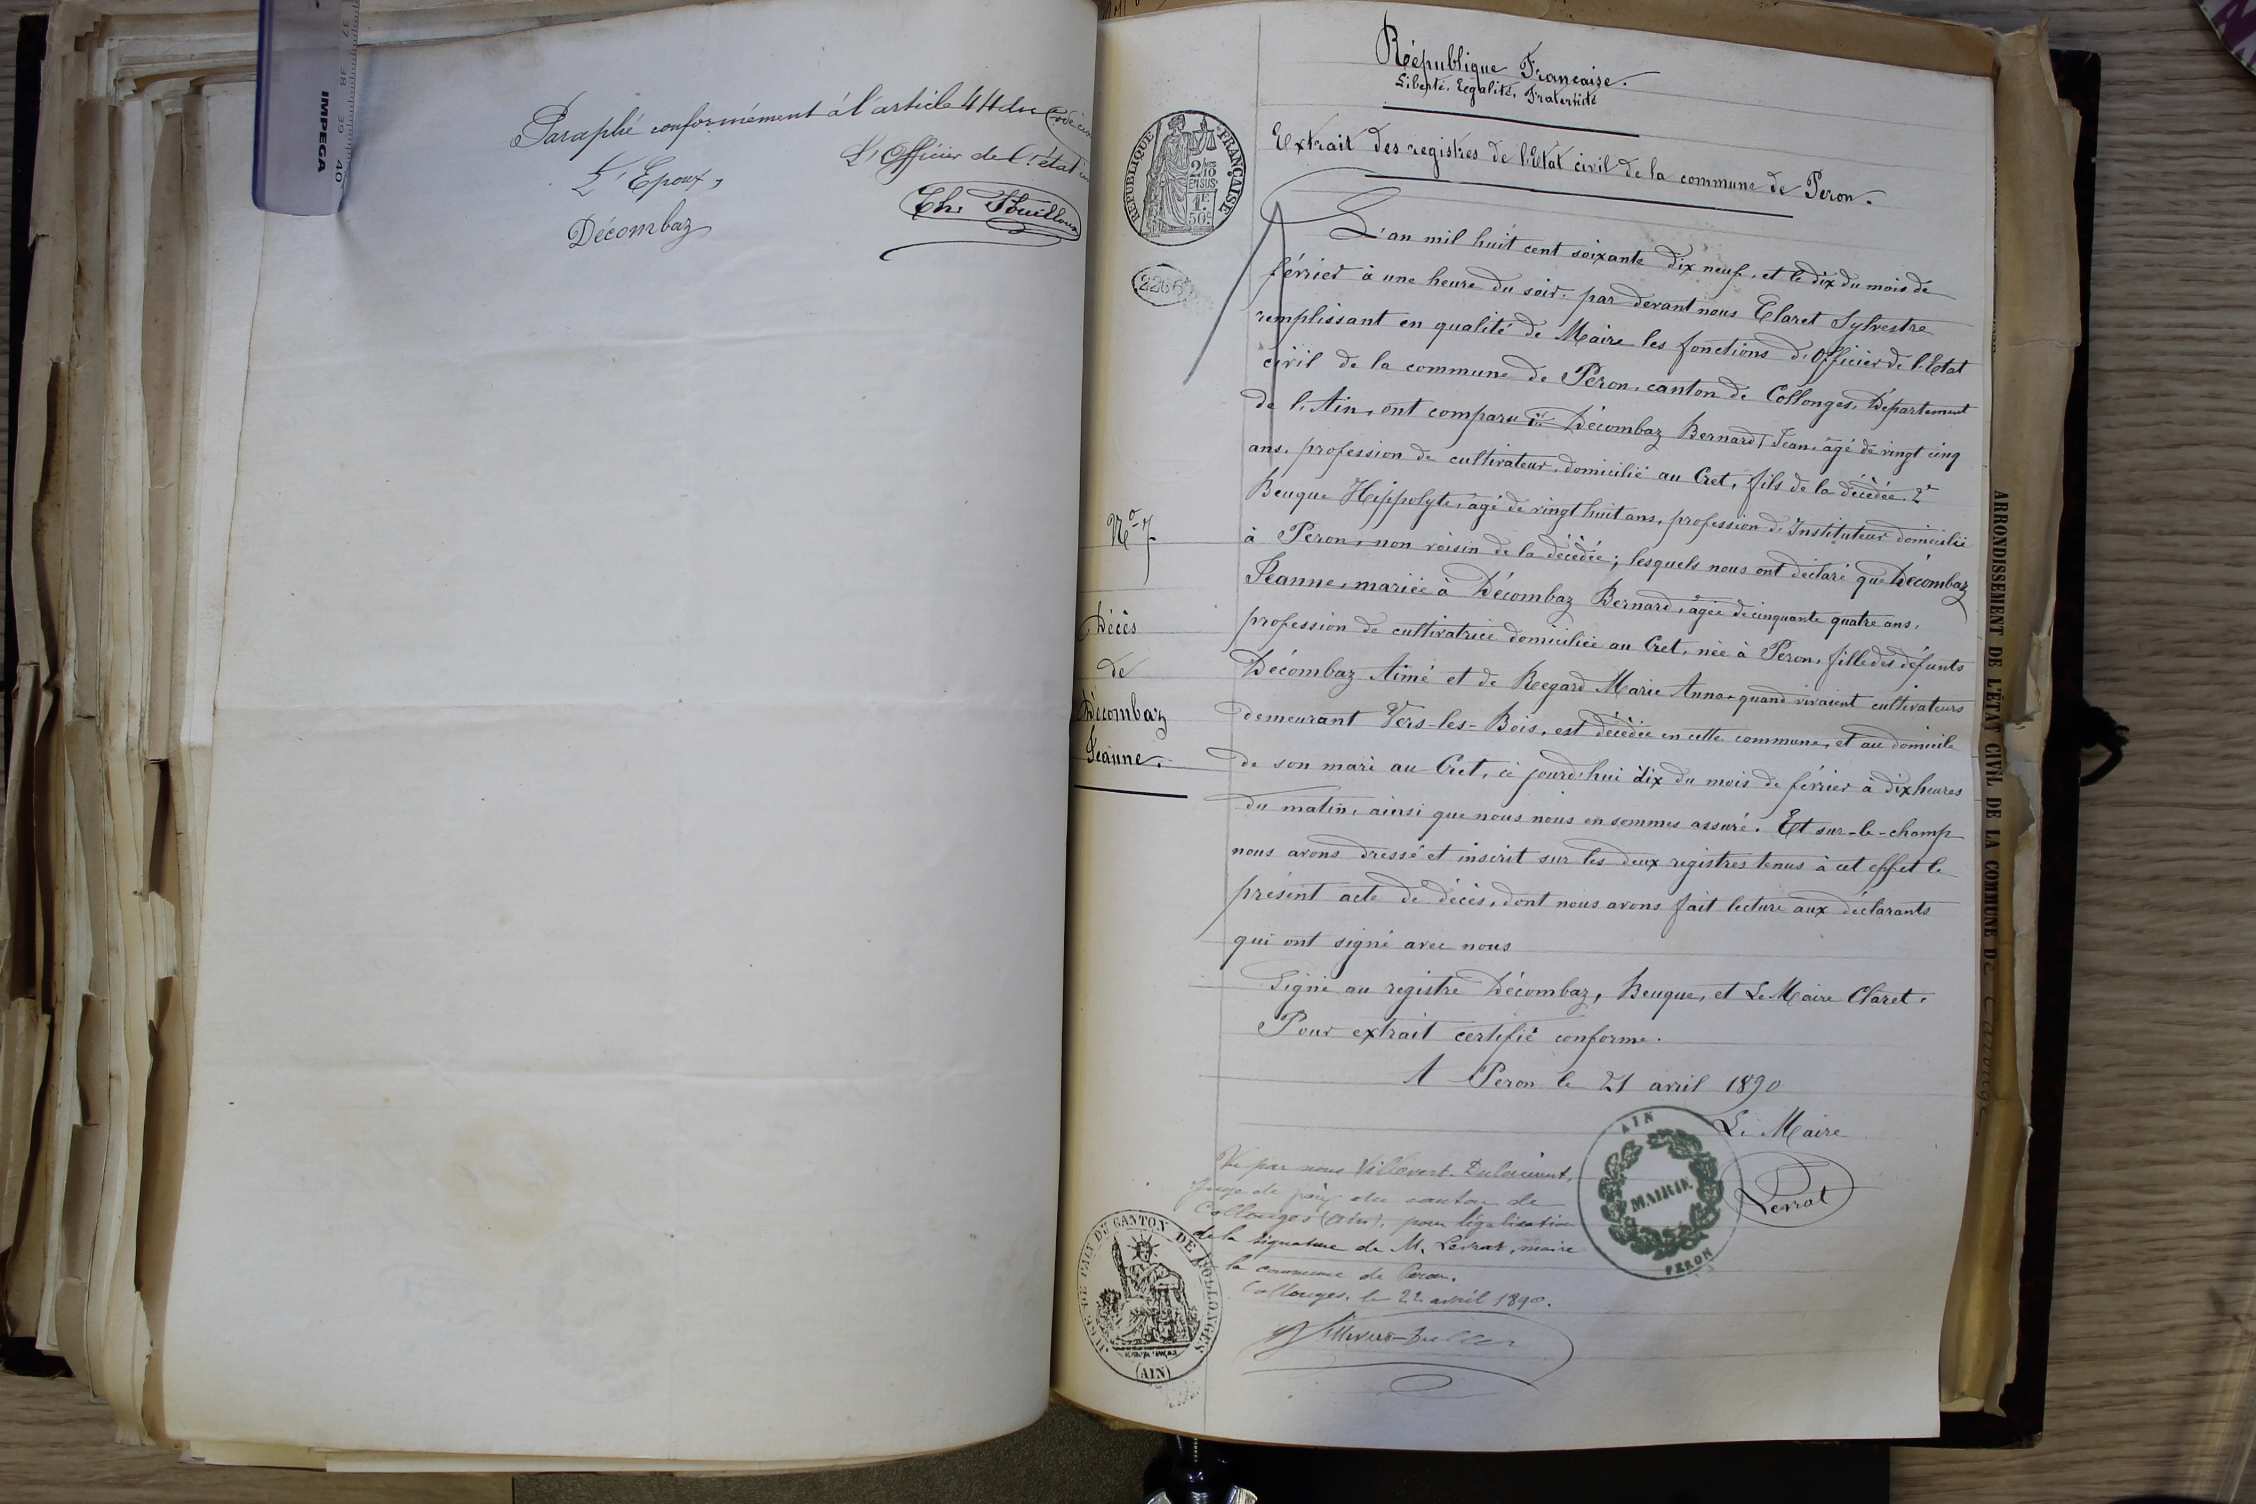 IMPEGA
37 38 39 40
Paraphé conformément à l'article 44 du Code civ
L'Epoux,
L'Officier de l'état
Décombaz
République Française.
Liberté, Egalité, Fraternité
REPUBLIQUE FRANÇAISE
2/10
EN SUS
1F
50c
Extrait des registres de l'Etat civil de la commune de Peron.
L'an mil huit cent soixante dix neuf, et le dix du mois de
février à une heure du soir, par devant nous Claret Sylvestre
remplissant en qualité de Maire les fonctions d'Officier de l'Etat
civil de la commune de Peron, canton de Collonges, Département
de l'Ain, ont comparu 1er Décombaz Bernard Jean, âgé de vingt cinq
ans, profession de cultivateur, domicilié au Cret, fils de la décédée. 2e
Beuque Hippolyte, âgé de vingt huit ans, profession d'Instituteur domicilié
à Peron, non voisin de la décédée; lesquels nous ont déclaré que Décombaz
Jeanne, mariée à Décombaz Bernard, âgée de cinquante quatre ans,
profession de cultivatrice domiciliée au Cret, née à Peron, fille des défunts
Décombaz Aimé et de Regard Marie Anne quand vivaient cultivateurs
demeurant Vers-les-Bois, est décédée en cette commune, et au domicile
de son mari au Cret, ce jourd'hui dix du mois de février à dix heures
du matin, ainsi que nous nous en sommes assuré. Et sur-le-champ
nous avons dressé et inscrit sur les deux registres tenus à cet effet le
présent acte de décès, dont nous avons fait lecture aux déclarants
qui ont signé avec nous
Signé au registre Décombaz, Beuque, et Le Maire Claret.
Pour extrait certifié conforme.
A Peron le 21 avril 1890
Le Maire
Levrat
No 7
Décès
de
Décombaz
Jeanne.
AIN
MAIRIE
PERON
Vu par nous Villevert
juge de paix du canton de
Collonges (Ain), pour légalisation
de la signature de M. Levrat, maire
la commune de Peron.
Collonges, le 22 avril 1890.
JUGE DE PAIX DU CANTON DE COLLONGES
(AIN)
ARRONDISSEMENT DE L'ÉTAT CIVIL DE LA COMMUNE DE